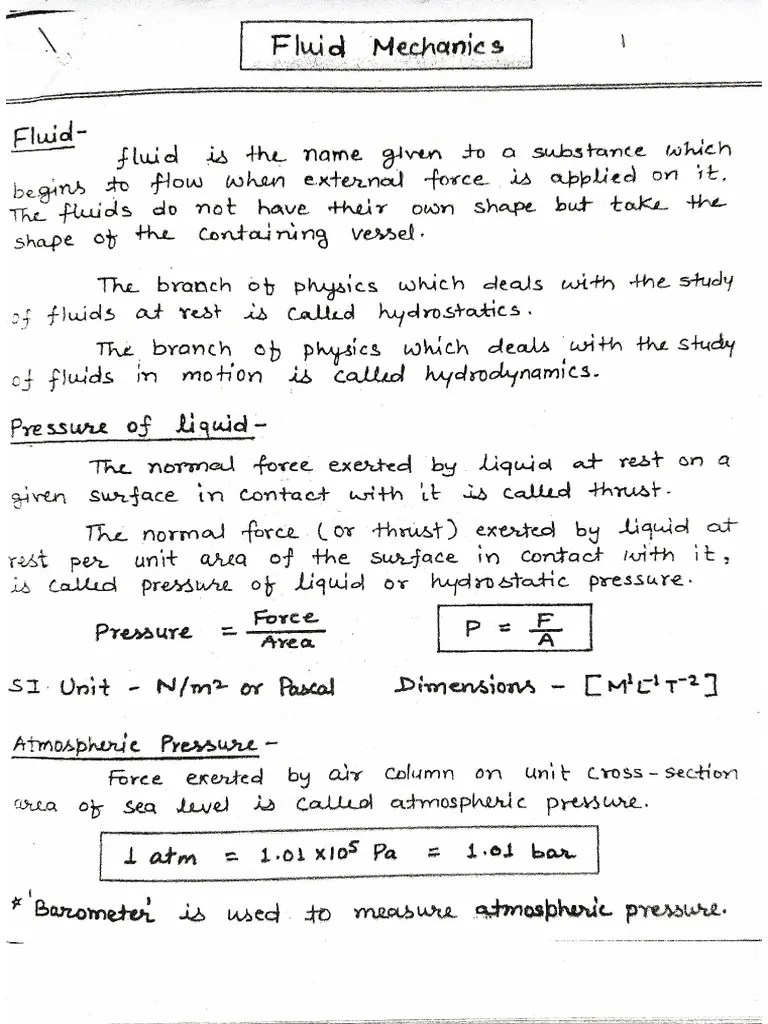 Fluid Mechanics
1
Fluid-
fluid is the name given to a substance which
begins to flow when external force is applied on it.
The fluids do not have their own shape but take the
shape of the containing vessel.
The branch of physics which deals with the study
of fluids at rest is called hydrostatics.
The branch of physics which deals with the study
of fluids in motion is called hydrodynamics.
Pressure of liquid-
The normal force exerted by liquid at rest on a
given surface in contact with it is called thrust.
The normal force (or thrust) exerted by liquid at
rest per unit area of the surface in contact with it,
is called pressure of liquid or hydrostatic pressure.
Pressure = Force/Area P = F/A
SI Unit - N/m² or Pascal Dimensions - [M¹L⁻¹T⁻²]
Atmospheric Pressure-
Force exerted by air column on unit cross-section
area of sea level is called atmospheric pressure.
1 atm = 1.01 x10⁵ Pa = 1.01 bar
* 'Barometer' is used to measure atmospheric pressure.